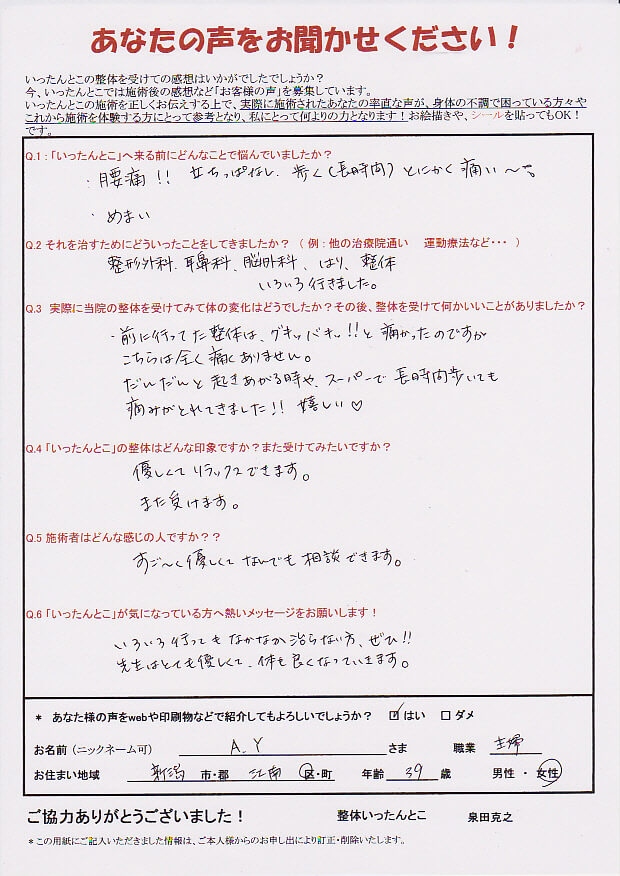 あなたの声をお聞かせください！
いったんとこの整体を受けての感想はいかがでしたでしょうか？
今、いったんとこでは施術後の感想など「お客様の声」を募集しています。
いったんとこの施術を正しくお伝えする上で、実際に施術されたあなたの率直な声が、身体の不調で困っている方々や
これから施術を体験する方にとって参考となり、私にとって何よりの力となります！お絵描きや、シールを貼ってもOK！
です。
Q.1：「いったんとこ」へ来る前にどんなことで悩んでいましたか？
・腰痛!! 立ちっぱなし 歩く(長時間)とにかく痛い～。
・めまい
Q.2 それを治すためにどういったことをしてきましたか？（例：他の治療院通い　運動療法など・・・）
整形外科、耳鼻科、脳外科、はり、整体
いろいろ行きました。
Q.3 実際に当院の整体を受けてみて体の変化はどうでしたか？その後、整体を受けて何かいいことがありましたか？
・前に行ってた整体は、グキッバキッ!!と痛かったのですが
こちらは全く痛くありません。
だんだんと起きあがる時や、スーパーで長時間歩いても
痛みがとれてきました!! 嬉しい♡
Q.4「いったんとこ」の整体はどんな印象ですか？また受けてみたいですか？
優しくてリラックスできます。
また受けます。
Q.5 施術者はどんな感じの人ですか？？
すご～く優しくてなんでも相談できます。
Q.6「いったんとこ」が気になっている方へ熱いメッセージをお願いします！
いろいろ行ってもなかなか治らない方、ぜひ!!
先生はとても優しくて、体も良くなっていきます。
* あなた様の声をwebや印刷物などで紹介してもよろしいでしょうか？ ☑はい □ダメ
お名前（ニックネーム可） A.Y さま 職業 主婦
お住まい地域 新潟 市・郡 江南 区・町 年齢 39 歳 男性・女性
ご協力ありがとうございました！ 整体いったんとこ 泉田克之
*この用紙にご記入いただきました情報は、ご本人様からのお申し出により訂正・削除いたします。